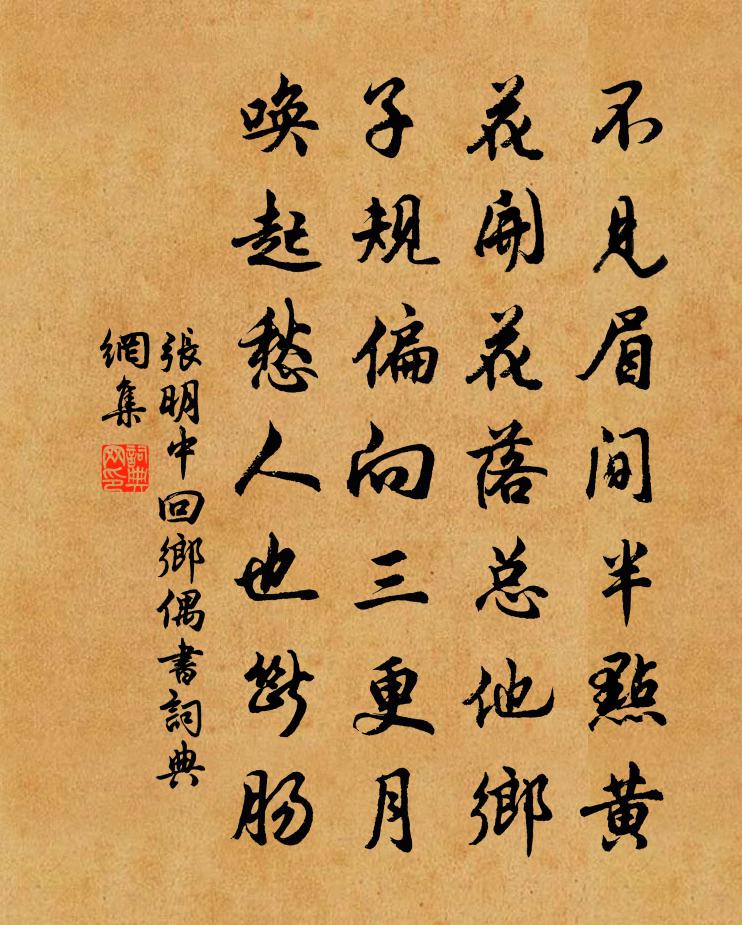 不見眉間半點黃
花開花落总他鄉
子規偏向三更月
喚起愁人也斷肠
張明中回鄉偶書詞典
網集
詞典
网印